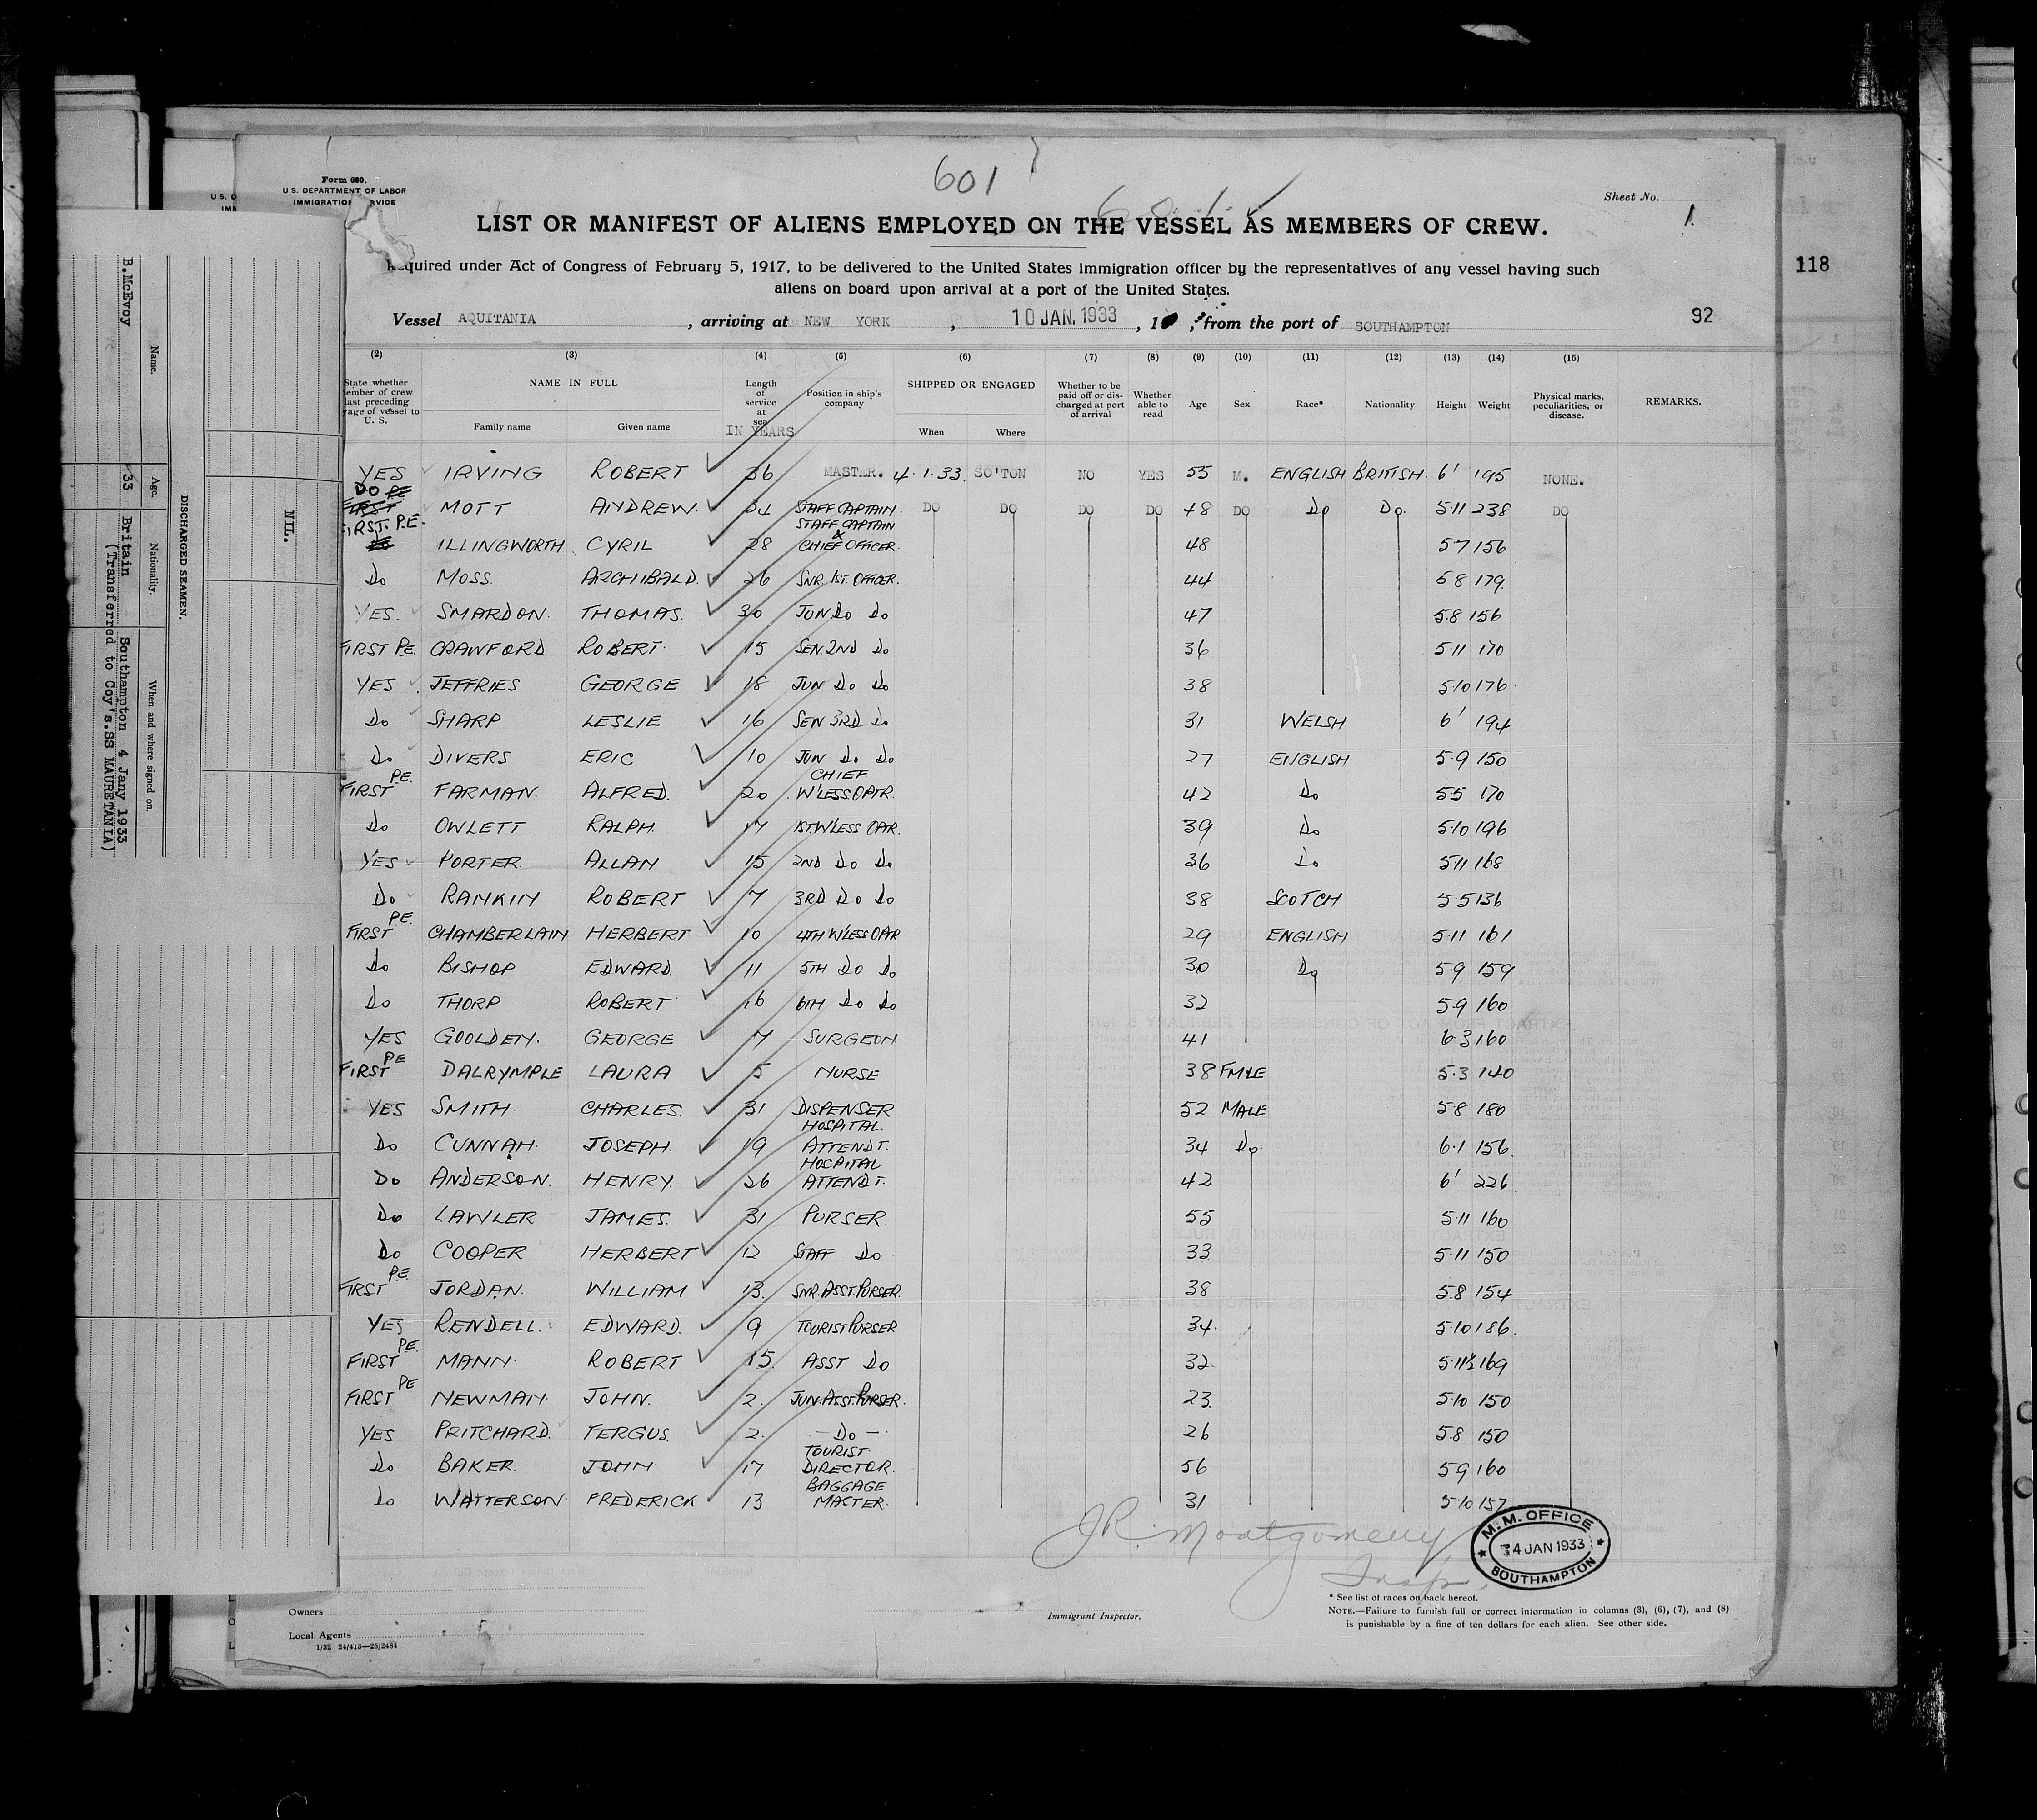 601
601 ✓
Form 680.
U.S. DEPARTMENT OF LABOR
IMMIGRATION RVICE
U S. D
IMM
Sheet No. 1.
LIST OR MANIFEST OF ALIENS EMPLOYED ON THE VESSEL AS MEMBERS OF CREW.
quired under Act of Congress of February 5, 1917, to be delivered to the United States immigration officer by the representatives of any vessel having such
aliens on board upon arrival at a port of the United States.
118
92
Vessel AQUITANIA , arriving at NEW YORK , 10 JAN. 1933 , 1 , from the port of SOUTHAMPTON
(2) (3) (4) (5) (6) (7) (8) (9) (10) (11) (12) (13) (14) (15)
State whether ember of crew last preceding yage of vessel to U. S. NAME IN FULL Family name Given name Length of service at sea IN YEARS Position in ship's company SHIPPED OR ENGAGED When Where Whether to be paid off or discharged at port of arrival Whether able to read Age Sex Race* Nationality Height Weight Physical marks, peculiarities, or disease. REMARKS.
YES IRVING ROBERT 36 MASTER. 4.1.33. SO'TON NO YES 55 M. ENGLISH BRITISH. 6' 195 NONE.
DO MOTT ANDREW. 34 STAFF CAPTAIN. DO DO DO DO 48 DO Do Do. 5.11 238 DO
FIRST. P.E. ILLINGWORTH. CYRIL 28 STAFF CAPTAIN & CHIEF OFFICER. 48 5.7 156
Do MOSS. ARCHIBALD. 26 SNR. 1ST. OFFICER. 44 5.8 179.
YES. SMARDON. THOMAS. 30 JUN Do Do 47 5.8 156
FIRST P.E. CRAWFORD ROBERT. 15 SEN. 2ND Do 36 5.11 170
YES JEFFRIES GEORGE 18 JUN Do Do 38 5.10 176.
Do SHARP LESLIE 16 SEN 3RD Do 31 WELSH 6' 194
Do DIVERS ERIC 10 JUN Do Do 27 ENGLISH 5.9 150
FIRST P.E. FARMAN. ALFRED. 20 CHIEF W'LESS OPTR. 42 Do 5.5 170
Do OWLETT RALPH. 17 1ST. W'LESS OPR. 39 Do 5.10 196
YES PORTER. ALLAN 15 2ND Do Do 36 Do 5.11 168
Do RANKIN ROBERT 7 3RD Do Do 38 SCOTCH 5.5 136
FIRST P.E. CHAMBERLAIN HERBERT 10 4TH W'LESS OPR 29 ENGLISH 5.11 161
Do BISHOP EDWARD. 11 5TH Do Do 30 Do 5.9 159
Do THORP ROBERT 16 6TH Do Do 32 5.9 160
YES GOOLDEN. GEORGE 7 SURGEON 41 6.3 160
FIRST P.E DALRYMPLE LAURA 5 NURSE 38 FMLE 5.3 140
YES SMITH. CHARLES. 31 DISPENSER 52 MALE 5.8 180
Do CUNNAH. JOSEPH. 19 HOSPITAL. ATTENDT. 34 Do. 6.1 156.
Do ANDERSON. HENRY. 26 HOSPITAL ATTENDT. 42 6' 226.
Do LAWLER JAMES. 31 PURSER. 55 5.11 160
Do COOPER HERBERT 12 STAFF Do 33. 5.11 150
FIRST P.E. JORDAN. WILLIAM 13. SNR. ASST. PURSER. 38 5.8 154
YES RENDELL. EDWARD. 9 TOURIST PURSER 34. 5.10 186.
FIRST P.E. MANN. ROBERT 15. ASST Do 32. 5.11½ 169
FIRST P.E NEWMAN. JOHN. 2. JUN. ASST. PURSER. 23. 5.10 150
YES PRITCHARD. FERGUS. 2. — Do — 26 5.8 150
Do BAKER. JOHN. 17 TOURIST. DIRECTOR. 56 5.9 160
Do WATTERSON. FREDERICK 13 BAGGAGE MASTER. 31 5.10 157
J.R. Montgomery
Insp.
M.M. OFFICE
4 JAN 1933
SOUTHAMPTON
Owners
Local Agents
1/32 24/413—25/2484
Immigrant Inspector.
* See list of races on back hereof.
NOTE.—Failure to furnish full or correct information in columns (3), (6), (7), and (8)
is punishable by a fine of ten dollars for each alien. See other side.
DISCHARGED SEAMEN.
Name. Age. Nationality. When and where signed on.
B.McEvoy 33 Britain Southampton 4 Jany 1933
(Transferred to Coy's.SS MAURETANIA)
NIL.